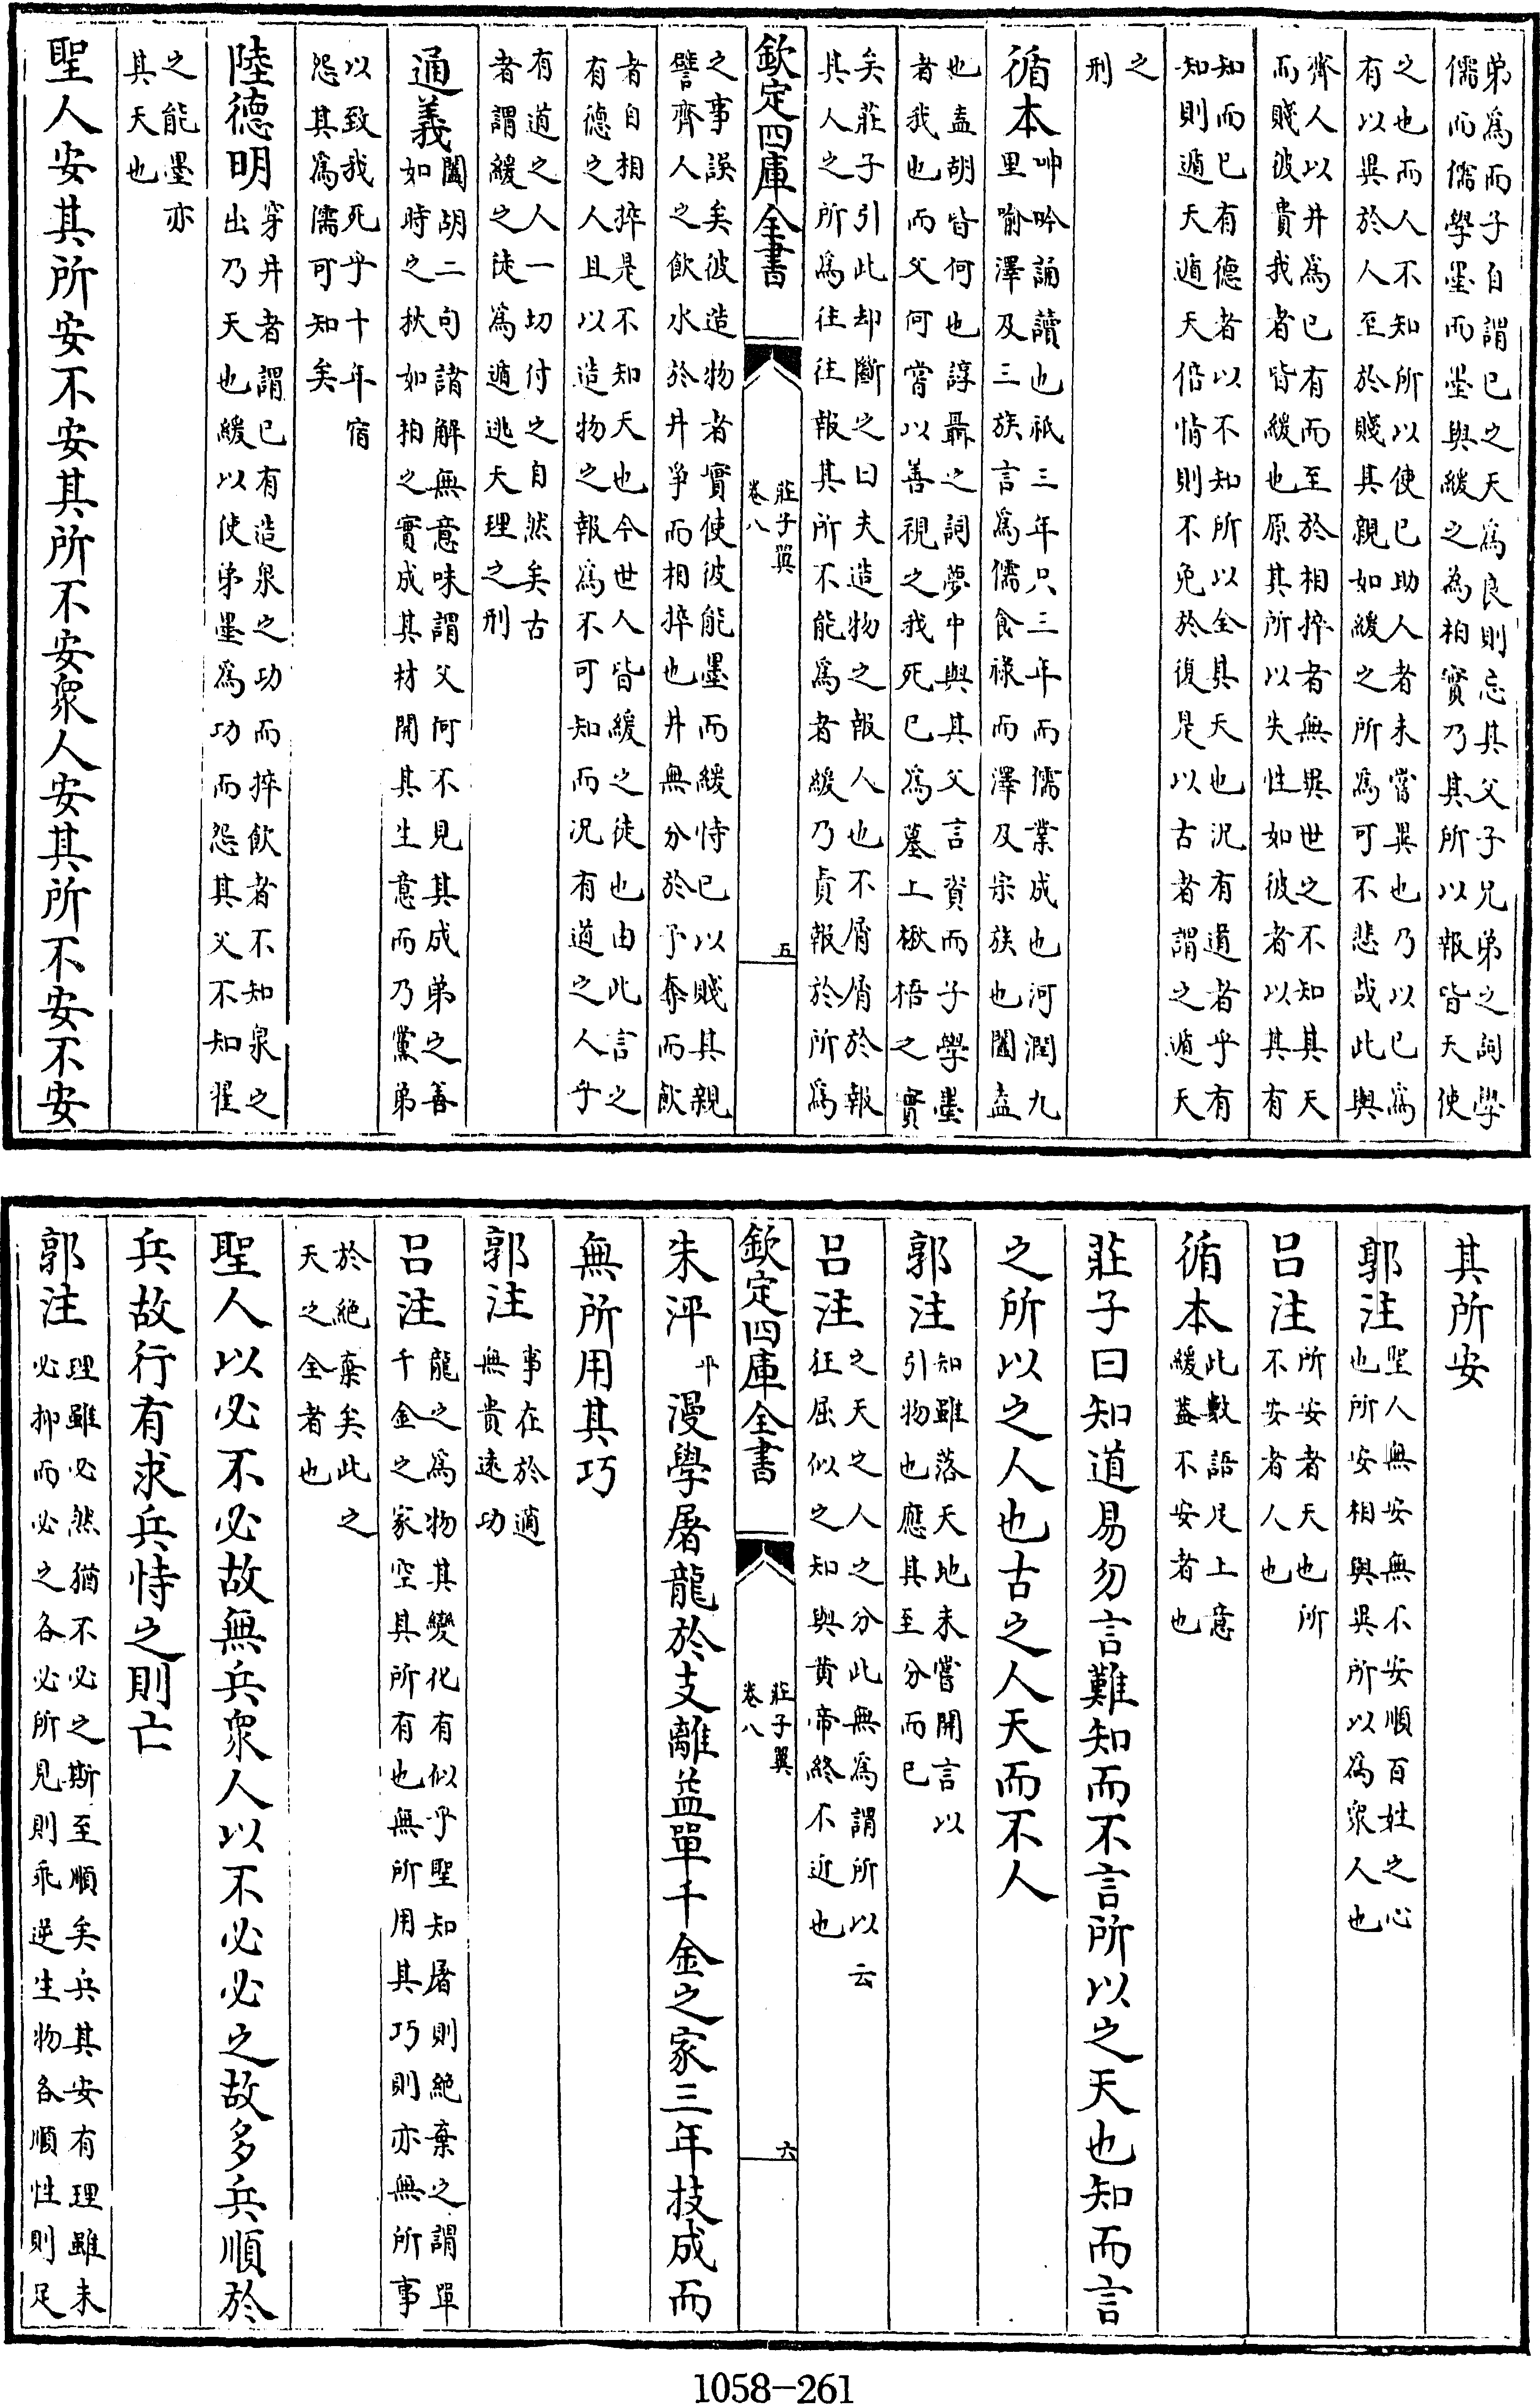 弟為而子自謂已之天為良則忘其父子兄弟之詞學
儒而儒學墨而墨與緩之為柏實乃其所以報皆天使
之也而人不知所以使已助人者未嘗異也乃以已為
有以異於人至於賤其親如緩之所為可不悲哉此與
齊人以井為已有而至於相捽者無異世之不知其天
而賤彼貴我者皆緩也原其所以失性如彼者以其有
知而已有德者以不知所以全具天也況有道者乎有
知則遁天遁天倍情則不免於復是以古者謂之遁天
之
刑
循本
呻吟誦讀也祇三年只三年而儒業成也河潤九
里喻澤及三族言為儒食祿而澤及宗族也闔盍
也盍胡皆何也諄聶之詞夢中與其父言資而子學墨
者我也而父何嘗以善視之我死已為墓上楸梧之實
矣莊子引此却斷之曰夫造物之報人也不屑屑於報
其人之所為往往報其所不能為者緩乃責報於所為
欽定四庫全書
莊子翼
卷八
五
之事誤矣彼造物者實使彼能墨而緩恃已以賤其親
譬齊人之飲水於井爭而相捽也井無分於予奪而飲
者自相捽是不知天也今世人皆緩之徒也由此言之
有德之人且以造物之報為不可知而況有道之人乎
有道之人一切付之自然矣古
者謂緩之徒為遁逃天理之刑
通義
闔胡二句諸解無意味謂父何不見其成弟之善
如時之秋如柏之實成其材開其生意而乃黨弟
以致我死乎十年宿
怨其為儒可知矣
陸德明
穿井者謂已有造泉之功而捽飲者不知泉之
出乃天也緩以使弟墨為功而怨其父不知翟
之能墨亦
其天也
聖人安其所安不安其所不安衆人安其所不安不安
其所安
郭注
聖人無安無不安順百姓之心
也所安相與異所以為衆人也
呂注
所安者天也所
不安者人也
循本
此數語足上意
緩蓋不安者也
莊子曰知道易勿言難知而不言所以之天也知而言
之所以之人也古之人天而不人
郭注
知雖落天地未嘗開言以
引物也應其至分而已
呂注
之天之人之分此無為謂所以云
狂屈似之知與黃帝終不近也
欽定四庫全書
莊子翼
卷八
六
朱泙
平
漫學屠龍於支離益單千金之家三年技成而
無所用其巧
郭注
事在於適
無貴遠功
呂注
龍之為物其變化有似乎聖知屠則絶棄之謂單
千金之家空其所有也無所用其巧則亦無所事
於絶棄矣此之
天之全者也
聖人以必不必故無兵衆人以不必必之故多兵順於
兵故行有求兵恃之則亡
郭注
理雖必然猶不必之斯至順矣兵其安有理雖未
必抑而必之各必所見則乖逆生物各順性則足
1058-261